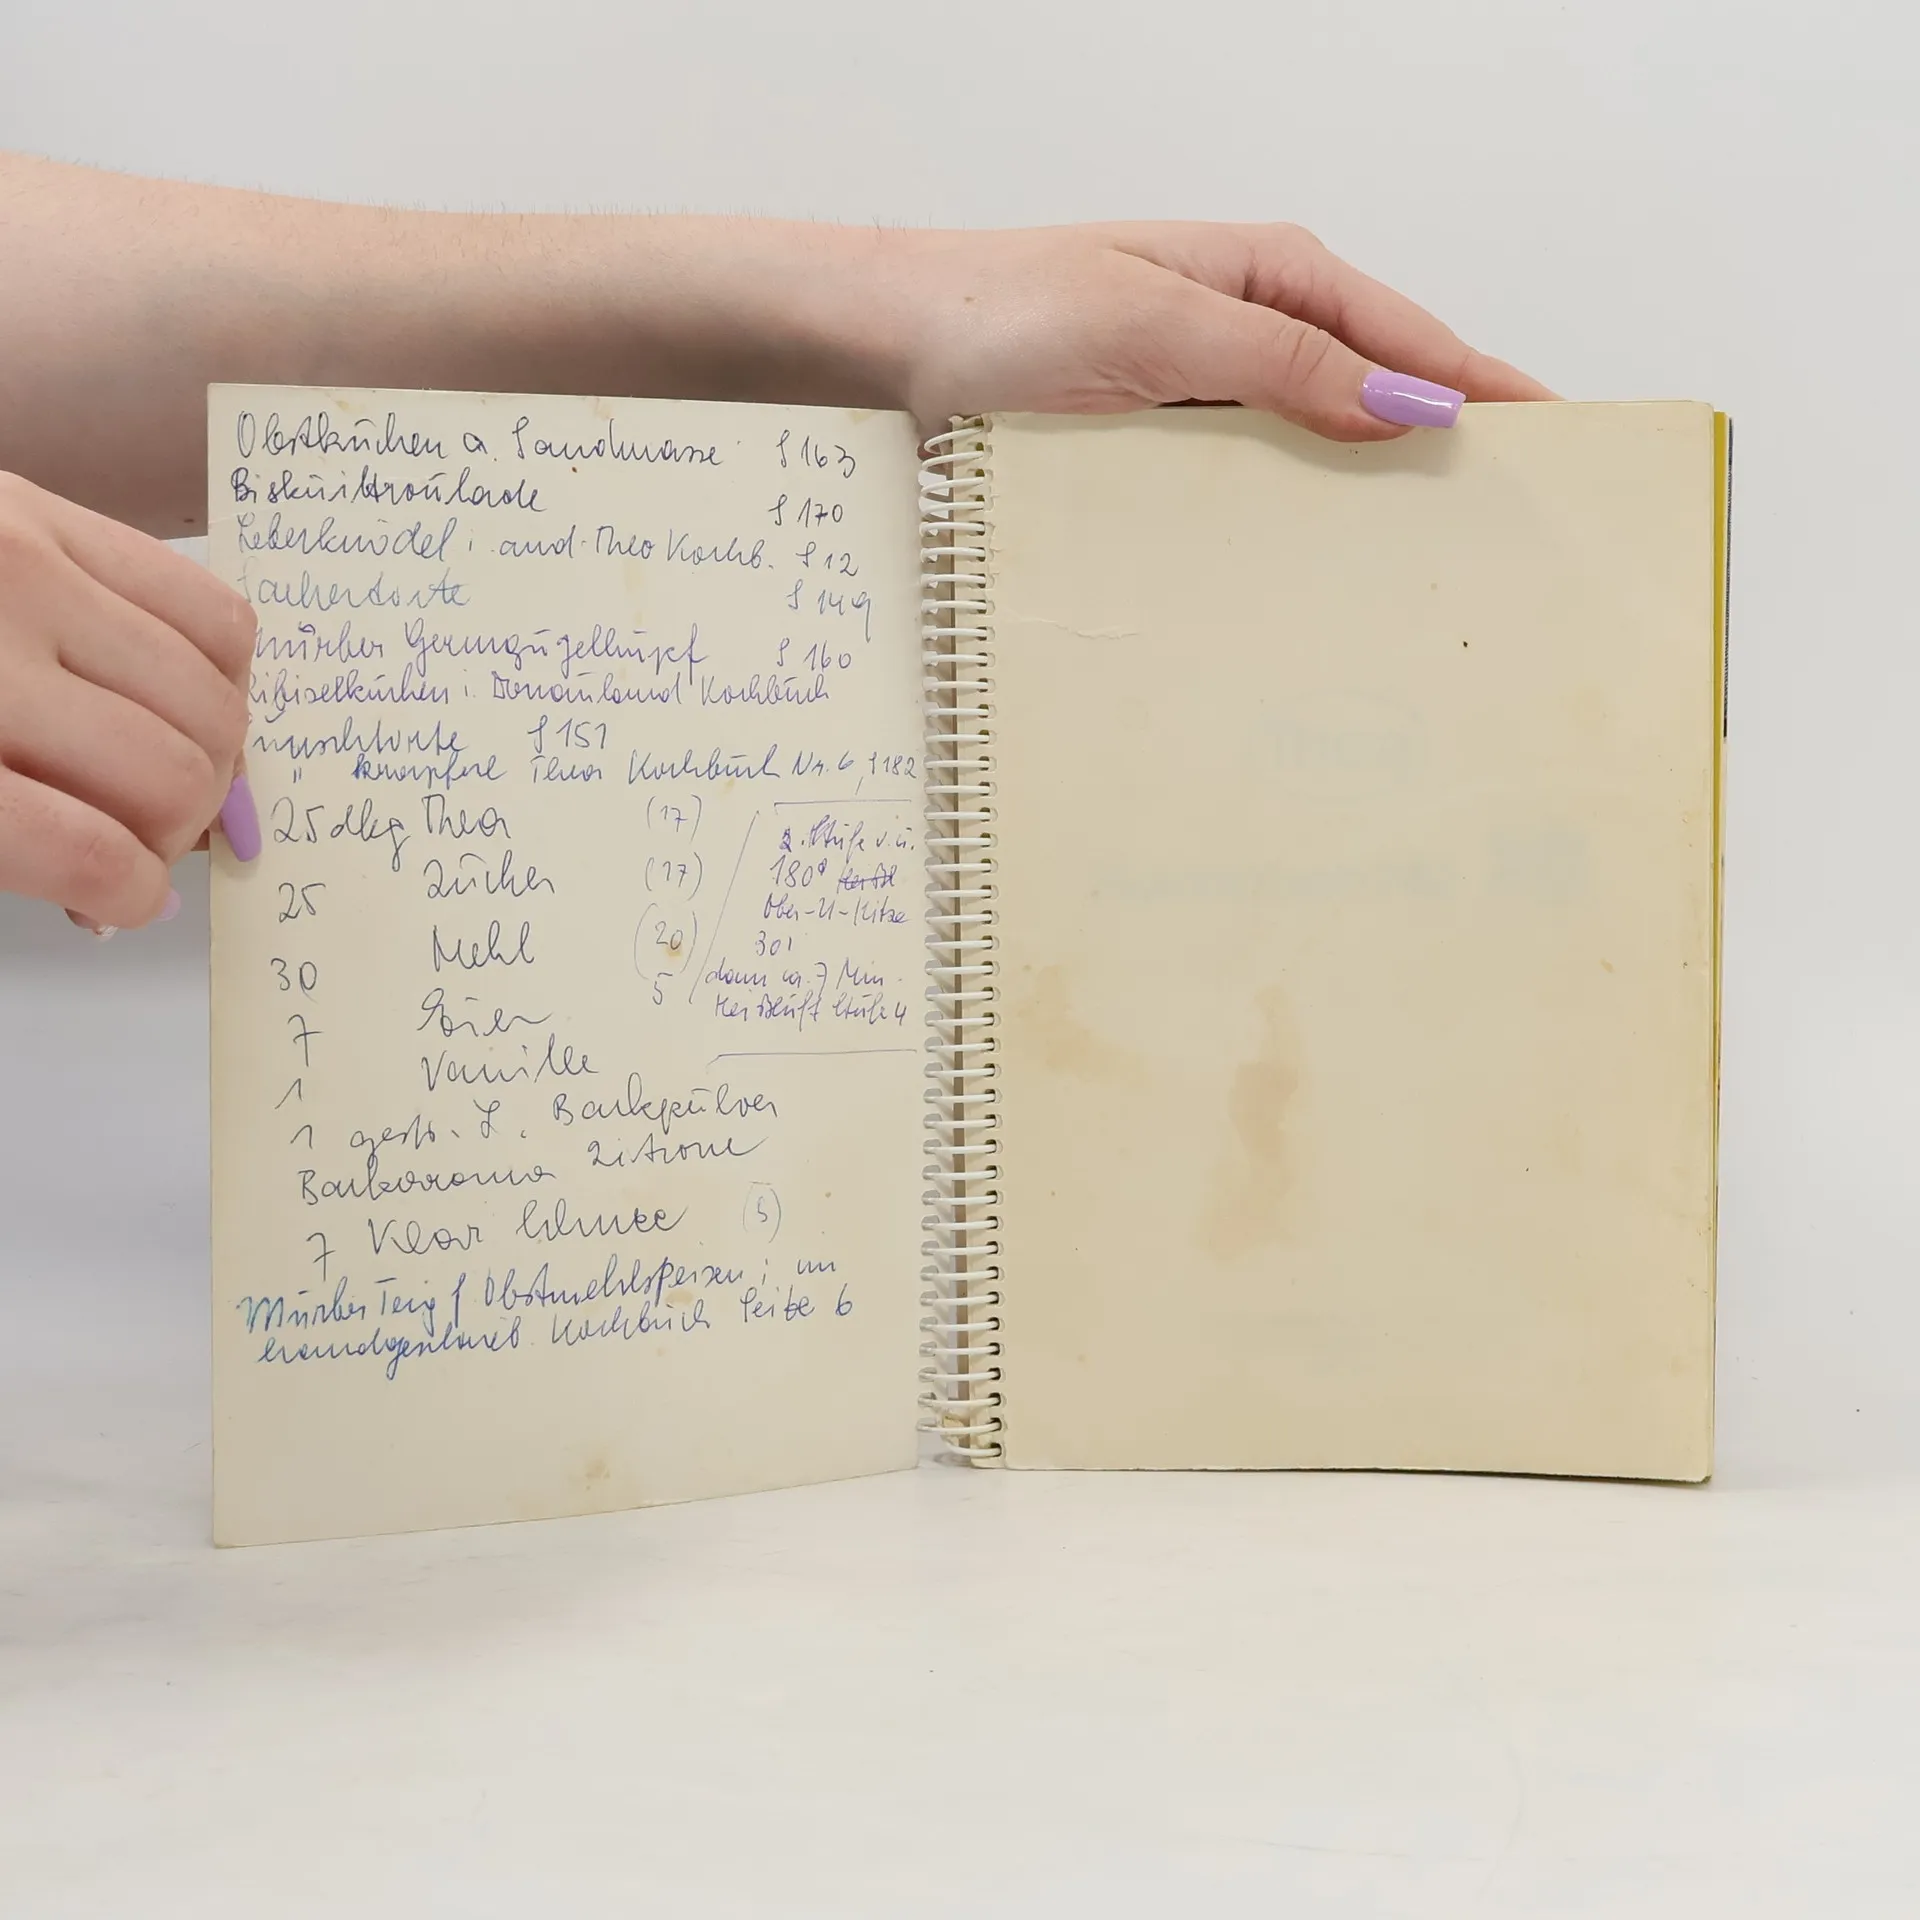 Obstkuchen a. Sandmasse S 163
Biskuitroulade S 170
Leberknödel i. and. Theo Kochb. S 12
Sachertorte S 149
Mürber Germgugelhupf S 160
Ribiselkuchen i. Donauland Kochbuch
Punschtorte S 151
" krapferl Thea Kochbuch Nr. 6, S 182
25 dkg Thea (17)
25 Zucker (17)
30 Mehl (20)
7 Eier 5
1 Vanille
1 gestr. L. Backpulver
Backaroma Zitrone
7 Klar Schnee (5)
2. Stufe v. u.
180°
Ober-U-Hitze
30'
dann ca. 7 Min.
Heißluft Stufe 4
Mürber Teig f Obstmehlspeisen i im
handgeschrieb. Kochbuch Seite 6